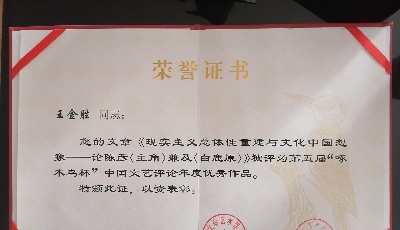 荣誉证书
王金胜 同志：
您的文章《现实主义总体性重建与文化中国想
象——论陈彦〈主角〉兼及〈白鹿原〉》被评为第五届“啄
木鸟杯”中国文艺评论年度优秀作品。
特颁此证，以资表彰。